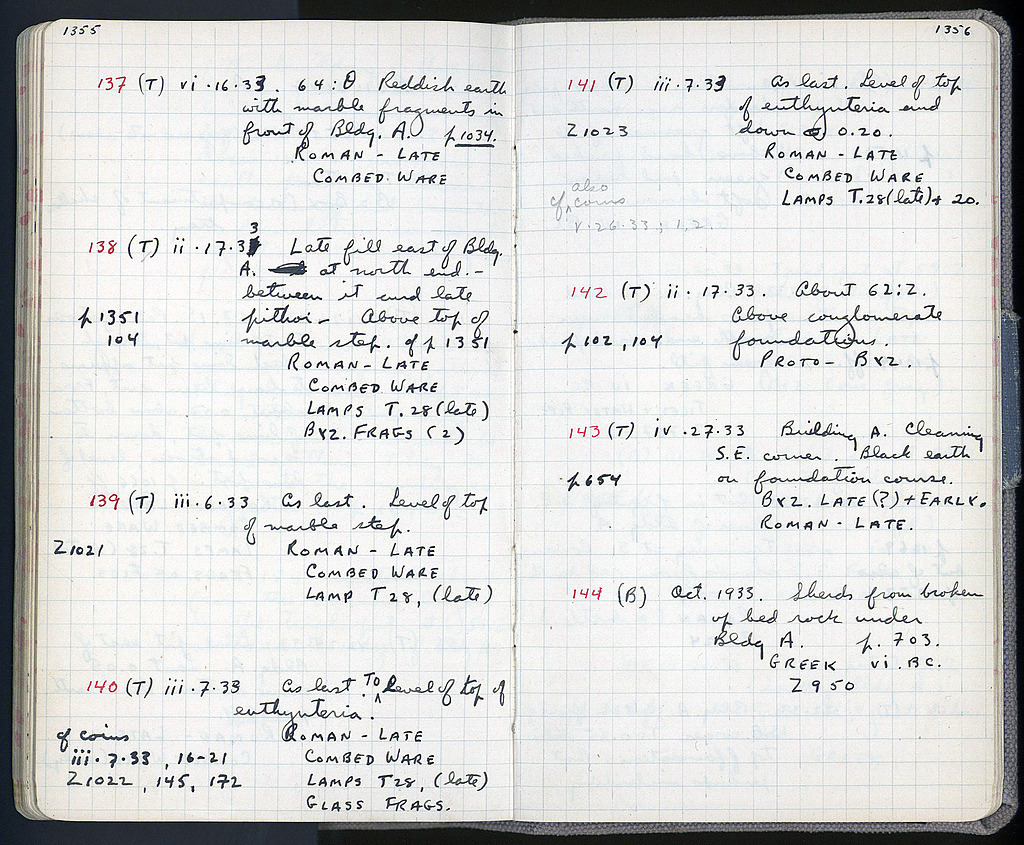 1355
137 (T) vi·16·33. 64:Θ Reddish earth
with marble fragments in
front of Bldg. A. p 1034.
ROMAN - LATE
COMBED WARE
138 (T) ii·17·33 Late fill east of Bldg.
A. at north end. -
between it and late
p 1351 pithoi - Above top of
104 marble step. cf p 1351
ROMAN - LATE
COMBED WARE
LAMPS T. 28 (late)
BYZ. FRAGS (2)
139 (T) iii·6·33 As last. Level of top
of marble step.
Z1021 ROMAN - LATE
COMBED WARE
LAMP T 28, (late)
140 (T) iii·7·33 As last. To Level of top of
euthynteria.
cf coins ROMAN - LATE
iii·7·33, 16-21 COMBED WARE
Z1022, 145, 172 LAMPS T28, (late)
GLASS FRAGS.
1356
141 (T) iii·7·33 As last. Level of top
of euthynteria and
Z1023 down 0.20.
ROMAN - LATE
COMBED WARE
LAMPS T.28 (late) + 20.
cf also coins
v·26·33; 1, 2.
142 (T) ii·17·33. About 62:Z.
Above conglomerate
p 102, 104 foundations.
PROTO - BYZ.
143 (T) iv·27·33 Building A. Cleaning
S.E. corner. Black earth
p 654 on foundation course.
BYZ. LATE (?) + EARLY.
ROMAN - LATE.
144 (B) Oct. 1933. Sherds from broken
up bed rock under
Bldg A. p. 703.
GREEK vi. BC.
Z 950